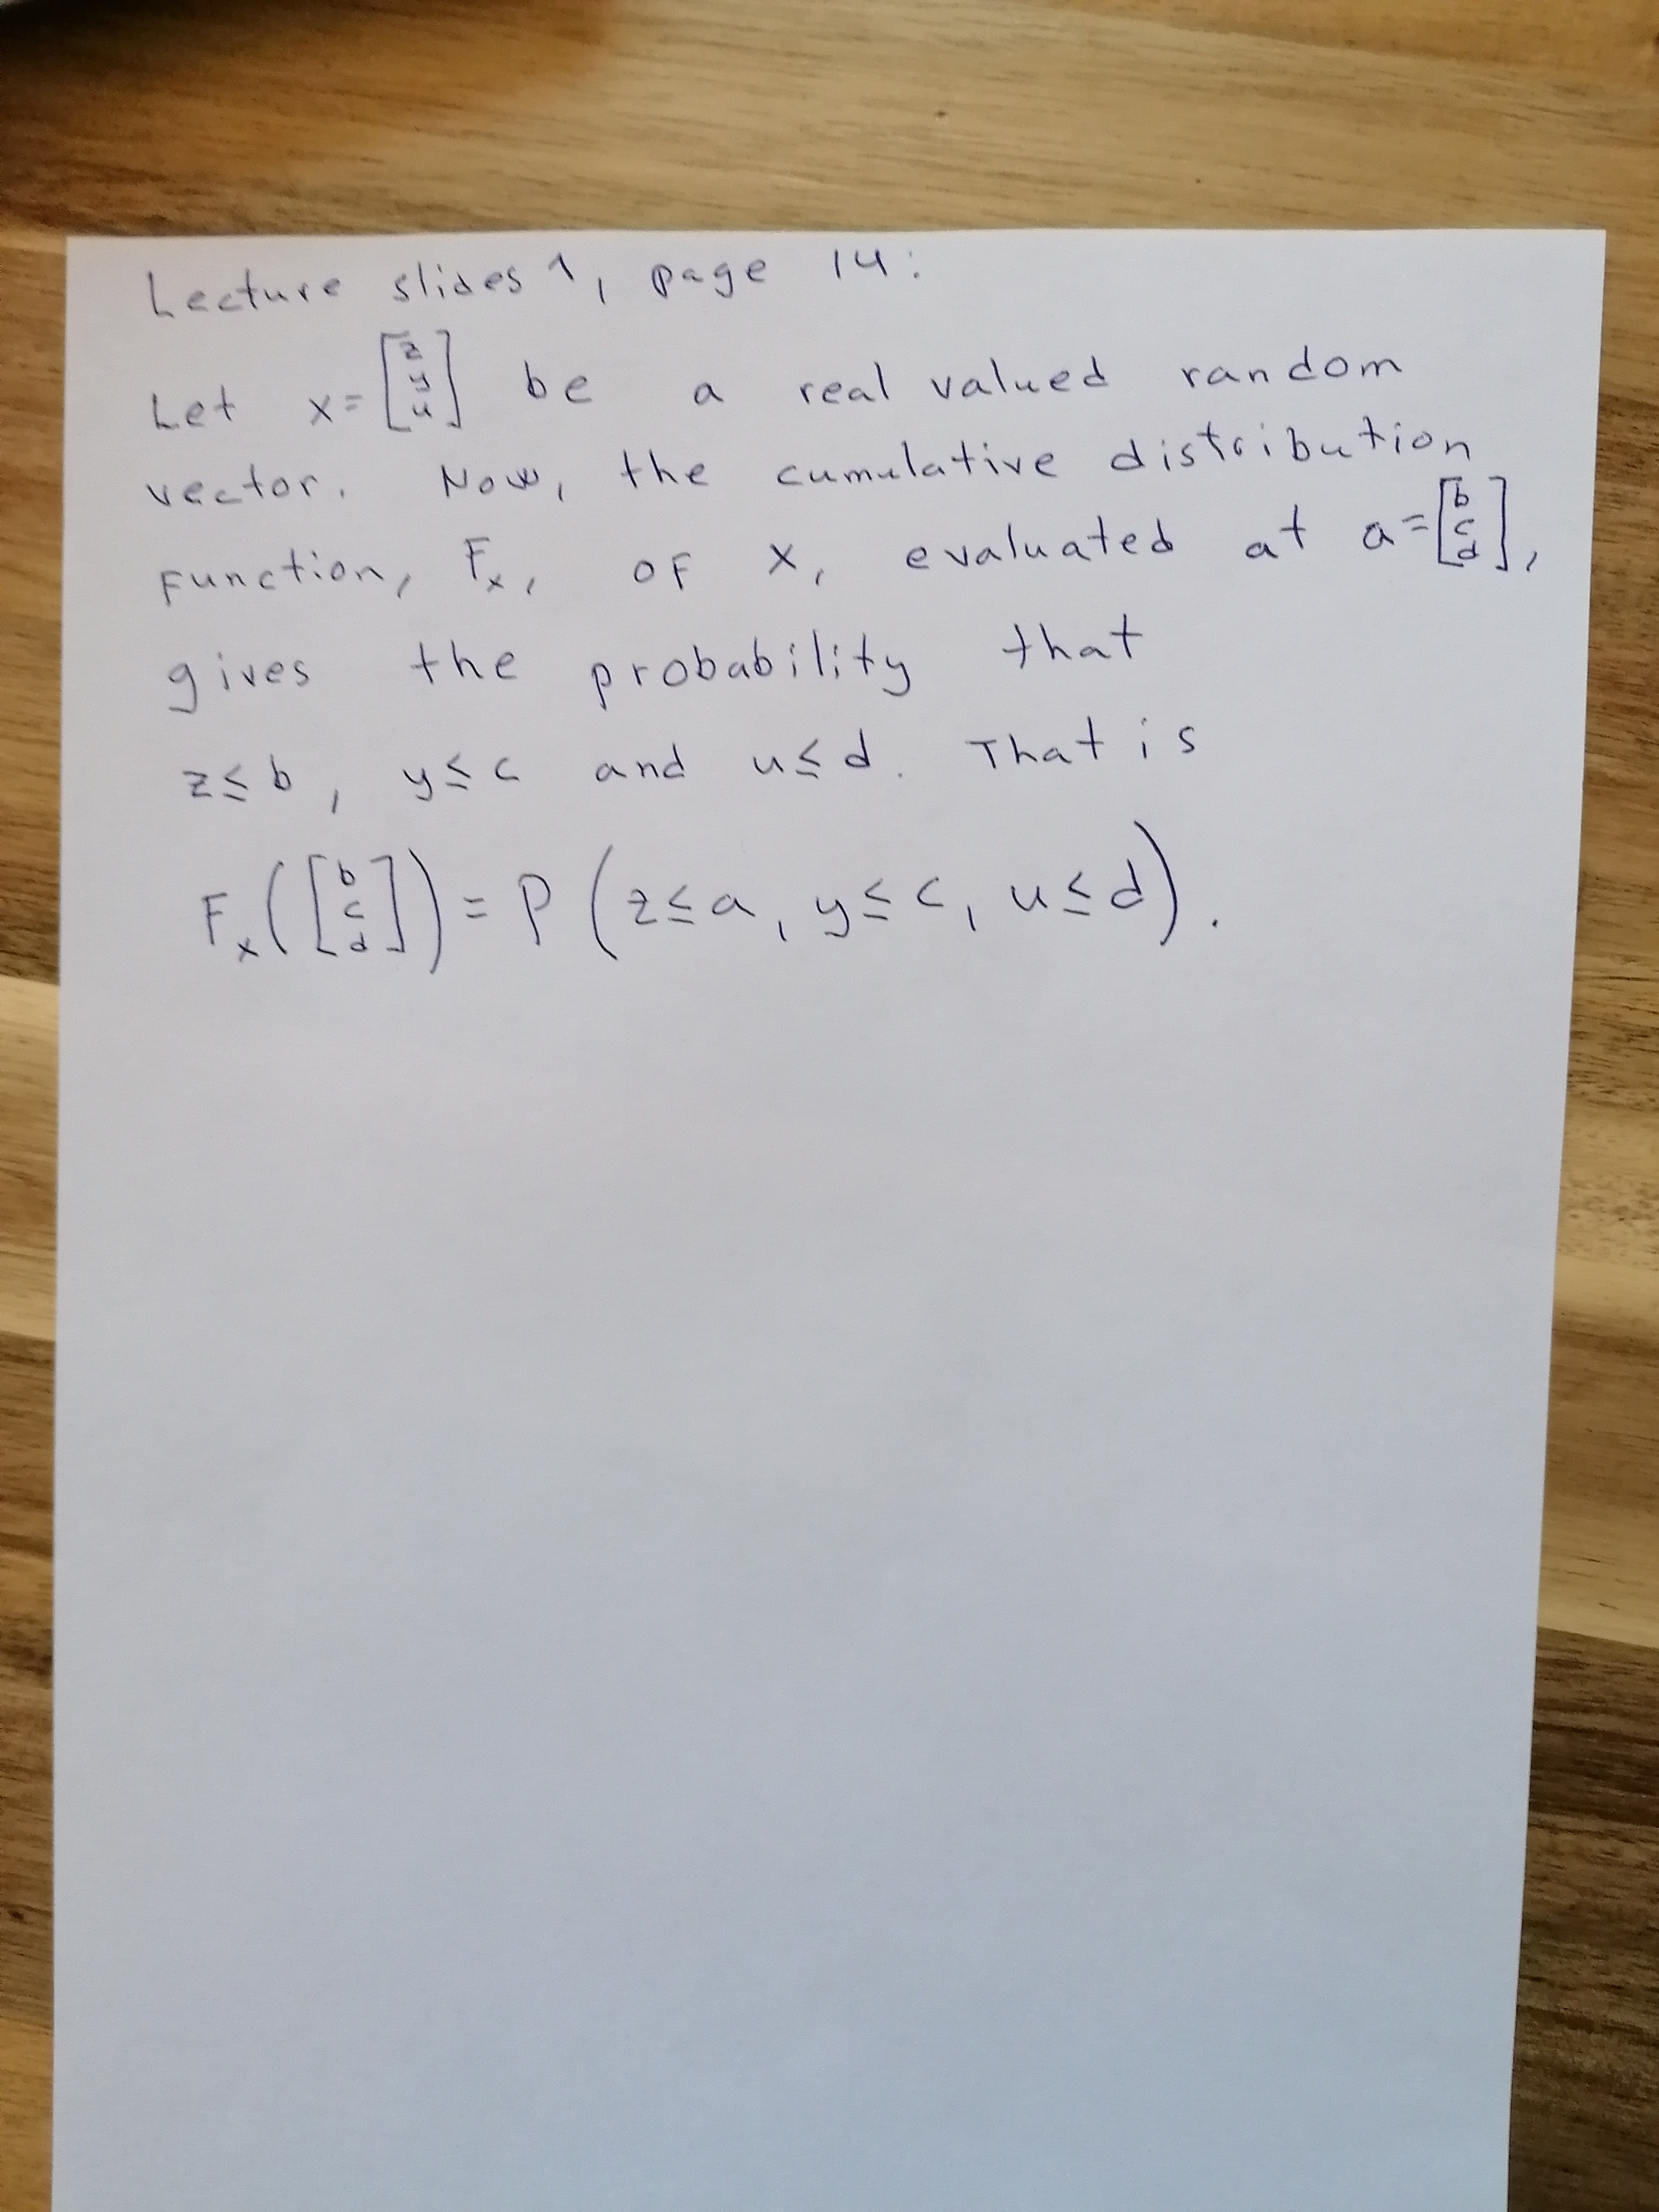 Lecture slides 1, page 14:
Let x = [z y u] be a real valued random
vector. Now, the cumulative distribution
function, Fx, of x, evaluated at a = [b c d],
gives the probability that
z ≤ b, y ≤ c and u ≤ d. That is
Fx([b c d]) = P(z ≤ a, y ≤ c, u ≤ d).